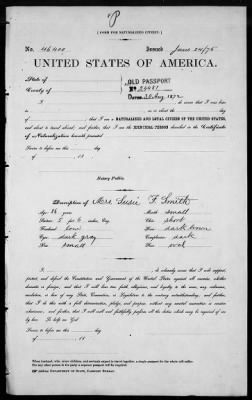 P
[FORM FOR NATURALIZED CITIZEN.]
No. 46400 Issued June 24/75
UNITED STATES OF AMERICA.
State of
County of
OLD PASSPORT
No. 26481
DATED 20 Aug 1872
I, do swear that I was born
that I am a NATURALIZED AND LOYAL CITIZEN OF THE UNITED STATES,
and about to travel abroad; and further, that I am the IDENTICAL PERSON described in the Certificate
of Naturalization herewith presented.
Sworn to before me, this day
of 18
Notary Public.
Description of Mrs Susie F. Smith
Age: 26 years Mouth: small
Stature: 5 feet 6 inches, Eng. Chin: short
Forehead: low Hair: dark brown
Eyes: dark gray Complexion: dark
Nose: small Face: oval
I, do solemnly swear that I will support,
protect, and defend the Constitution and Government of the United States against all enemies, whether
domestic or foreign; and that I will bear true faith, allegiance, and loyalty to the same, any ordinance,
resolution, or law of any State, Convention, or Legislature to the contrary notwithstanding; and further,
that I do this with a full determination, pledge, and purpose, without any mental reservation or evasion
whatsoever; and further, that I will well and faithfully perform all the duties which may be required of me
by law: So help me God.
Sworn to before me, this day
of 18
When husband, wife, minor children, and servants expect to travel together, a single passport for the whole will suffice.
For any other person in the party, a separate passport will be required.